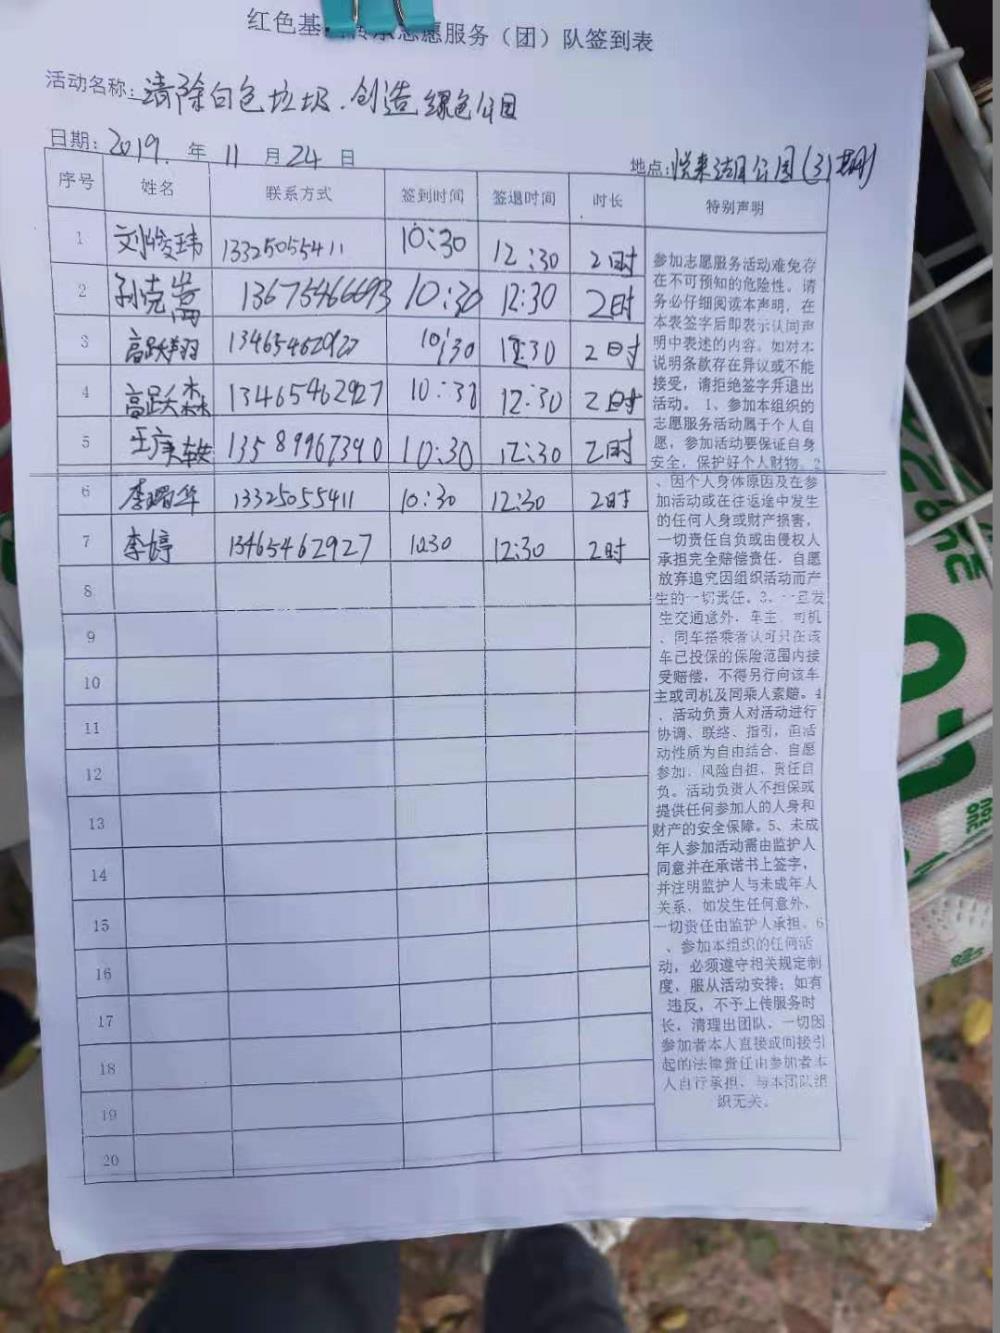 红色基 传承志愿服务（团）队签到表
活动名称：清除白色垃圾.创造绿色公园
日期：2019. 年 11 月 24 日
地点：悦来湖公园(3期)
序号 姓名 联系方式 签到时间 签退时间 时长 特别声明
1 刘俊玮 13325055411 10:30 12:30 2时
2 孙克嵩 13675466693 10:30 12:30 2时
3 高跃翔 13465462927 10:30 12:30 2时
4 高跃森 13465462927 10:30 12:30 2时
5 王庚轶 13589967390 10:30 12:30 2时
6 李曙华 13325055411 10:30 12:30 2时
7 李婷 13465462927 1030 12:30 2时
8
9
10
11
12
13
14
15
16
17
18
19
20
参加志愿服务活动难免存
在不可预知的危险性。请
务必仔细阅读本声明，在
本表签字后即表示认同声
明中表述的内容。如对本
说明条款存在异议或不能
接受，请拒绝签字并退出
活动。1、参加本组织的
志愿服务活动属于个人自
愿，参加活动要保证自身
安全，保护好个人财物。2
、因个人身体原因及在参
加活动或在往返途中发生
的任何人身或财产损害，
一切责任自负或由侵权人
承担完全赔偿责任，自愿
放弃追究因组织活动而产
生的一切责任。3、一旦发
生交通意外，车主、司机
、同车搭乘者认可只在该
车已投保的保险范围内接
受赔偿，不得另行向该车
主或司机及同乘人索赔。4
、活动负责人对活动进行
协调、联络、指引，但活
动性质为自由结合、自愿
参加、风险自担、责任自
负。活动负责人不担保或
提供任何参加人的人身和
财产的安全保障。5、未成
年人参加活动需由监护人
同意并在承诺书上签字，
并注明监护人与未成年人
关系，如发生任何意外，
一切责任由监护人承担。6
、参加本组织的任何活
动，必须遵守相关规定制
度，服从活动安排；如有
违反，不予上传服务时
长，清理出团队，一切因
参加者本人直接或间接引
起的法律责任由参加者本
人自行承担，与本团队组
织无关。